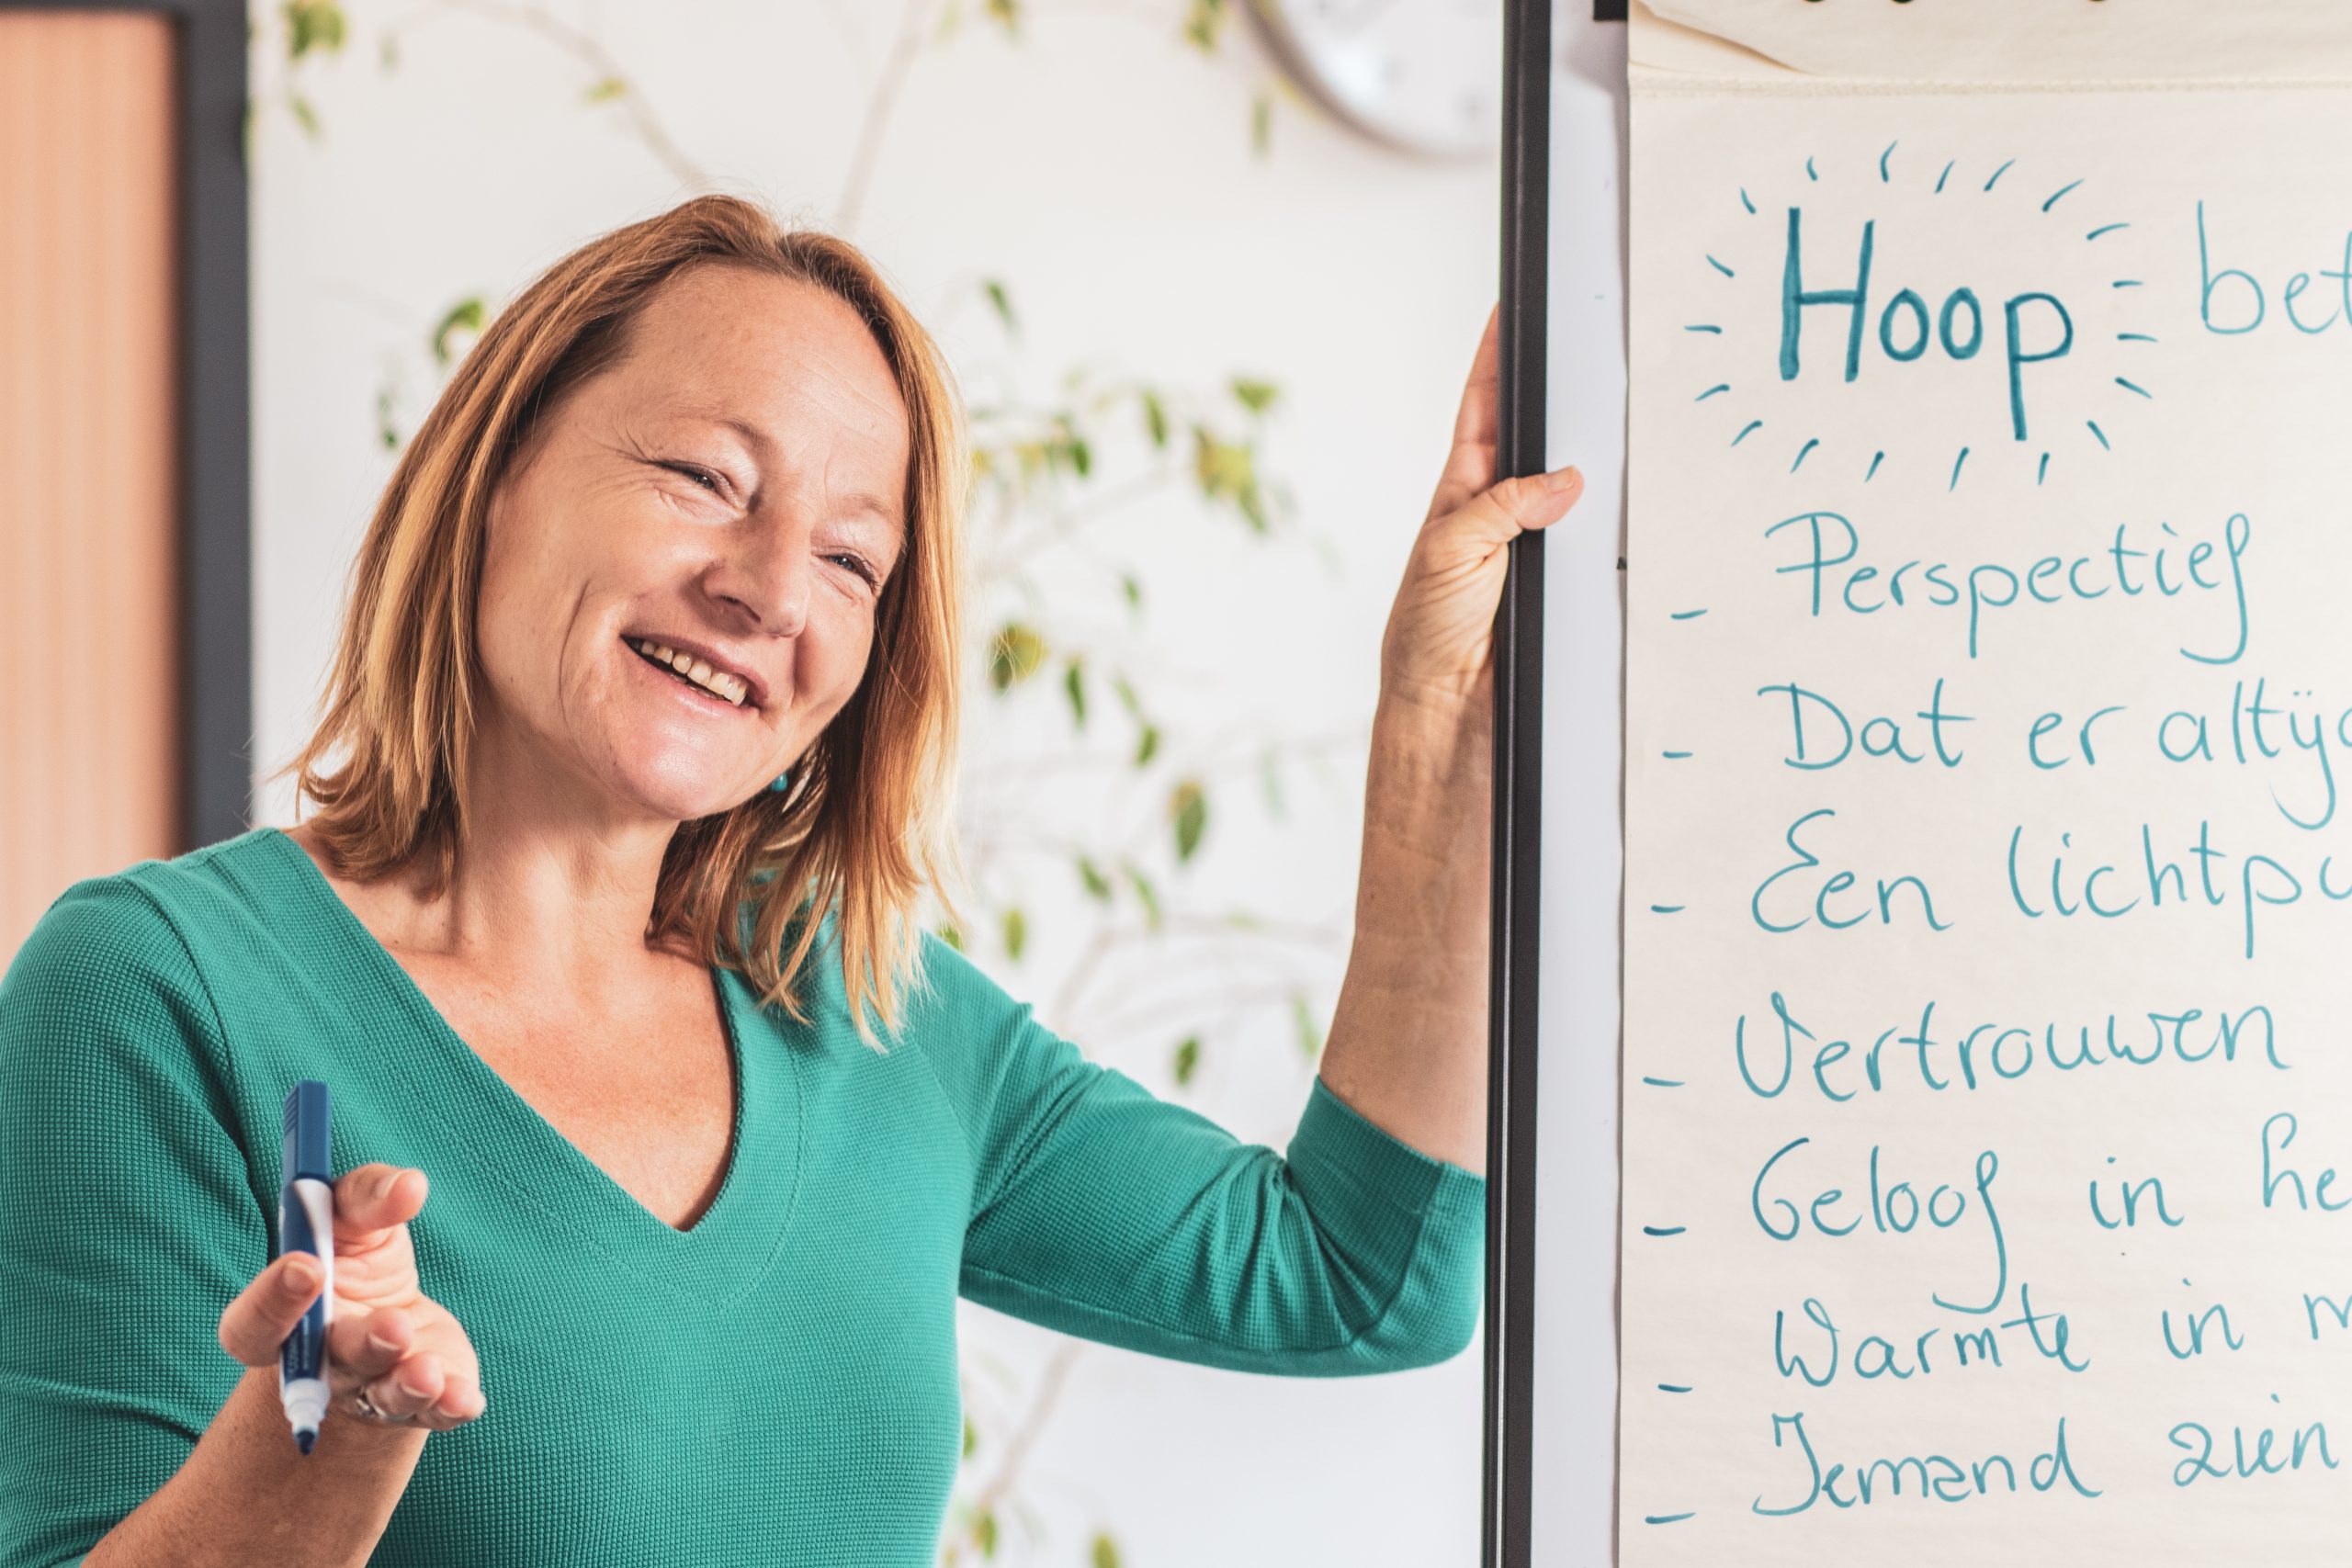 Hoop bet
- Perspectief
- Dat er altijd
- Een lichtpu
- Vertrouwen
- Geloof in he
- Warmte in m
- Iemand zien